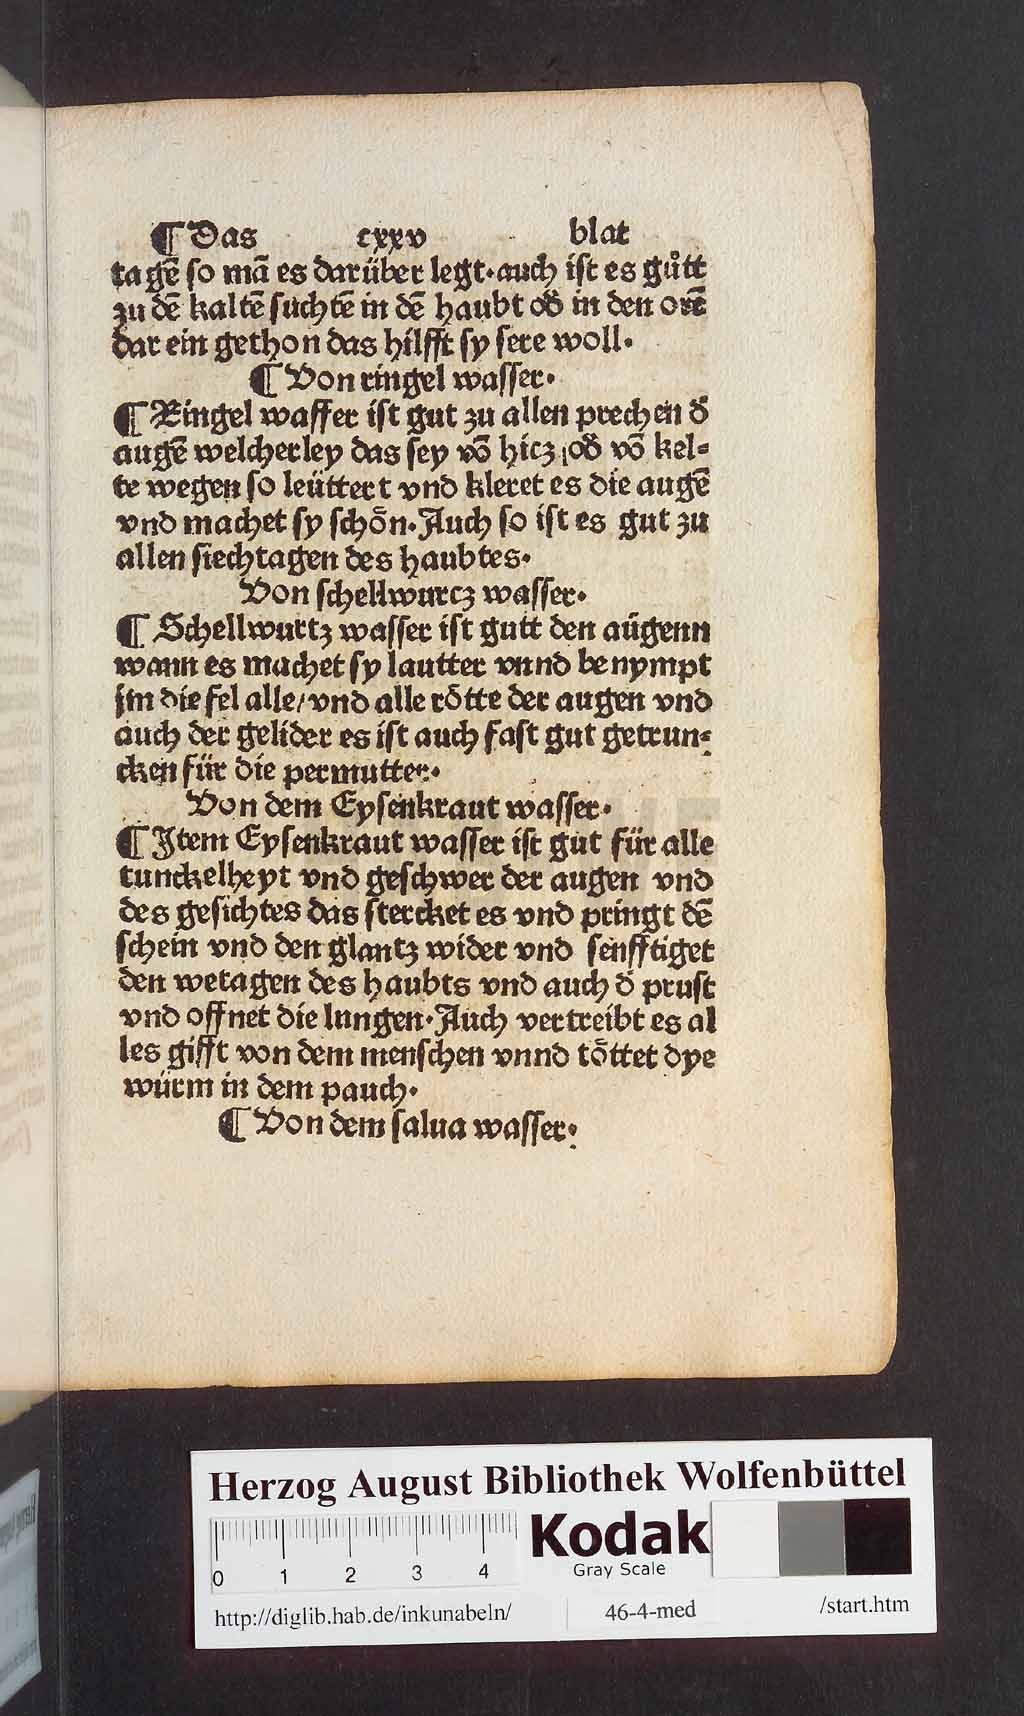 ¶ Das cxxv blat
tagē so mā es darüber legt·auch ist es gůtt
zu dē kaltē suchtē in dē haubt od̕ in den orē
dar ein gethon das hilfft sy sere woll·
¶ Von ringel wasser·
¶ Ringel wasser ist gut zu allen prechen d̕
augē welcherley das sey vō hicz / od̕ vō kel⸗
te wegen so leüttert vnd kleret es die augē
vnd machet sy schōn·Auch so ist es gut zu
allen siechtagen des haubtes·
Von schellwurcz wasser·
¶ Schellwurtz wasser ist gutt den aügenn
wann es machet sy lautter vnnd benympt
jm die fel alle/vnd alle rötte der augen vnd
auch der gelider es ist auch fast gut getrun⸗
cken für die permutter·
Von dem Eysenkraut wasser·
¶ Item Eysenkraut wasser ist gut für alle
tunckelheyt vnd geschwer der augen vnd
des gesichtes das stercket es vnd pringt dē
schein vnd den glantz wider vnd senfftiget
den wetagen des haubts vnd auch d̕ prust
vnd offnet die lungen·Auch vertreibt es al
les gifft von dem menschen vnnd töttet dye
würm in dem pauch·
¶ Von dem salua wasser·
Herzog August Bibliothek Wolfenbüttel
0 1 2 3 4
Kodak
Gray Scale
http://diglib.hab.de/inkunabeln/ 46-4-med /start.htm